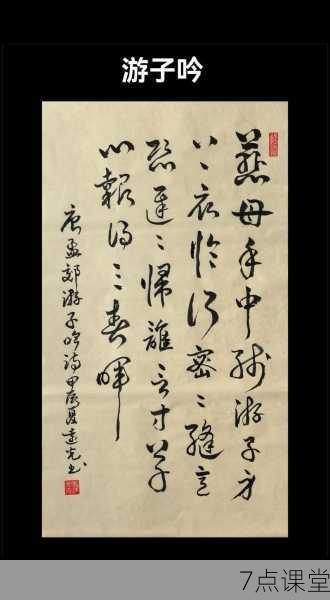 游子吟
慈母手中线游子身
上衣临行密〻缝意
恐遲〻歸誰言寸草
心報得三春暉
唐孟郊游子吟诗甲辰夏光书
7点课堂